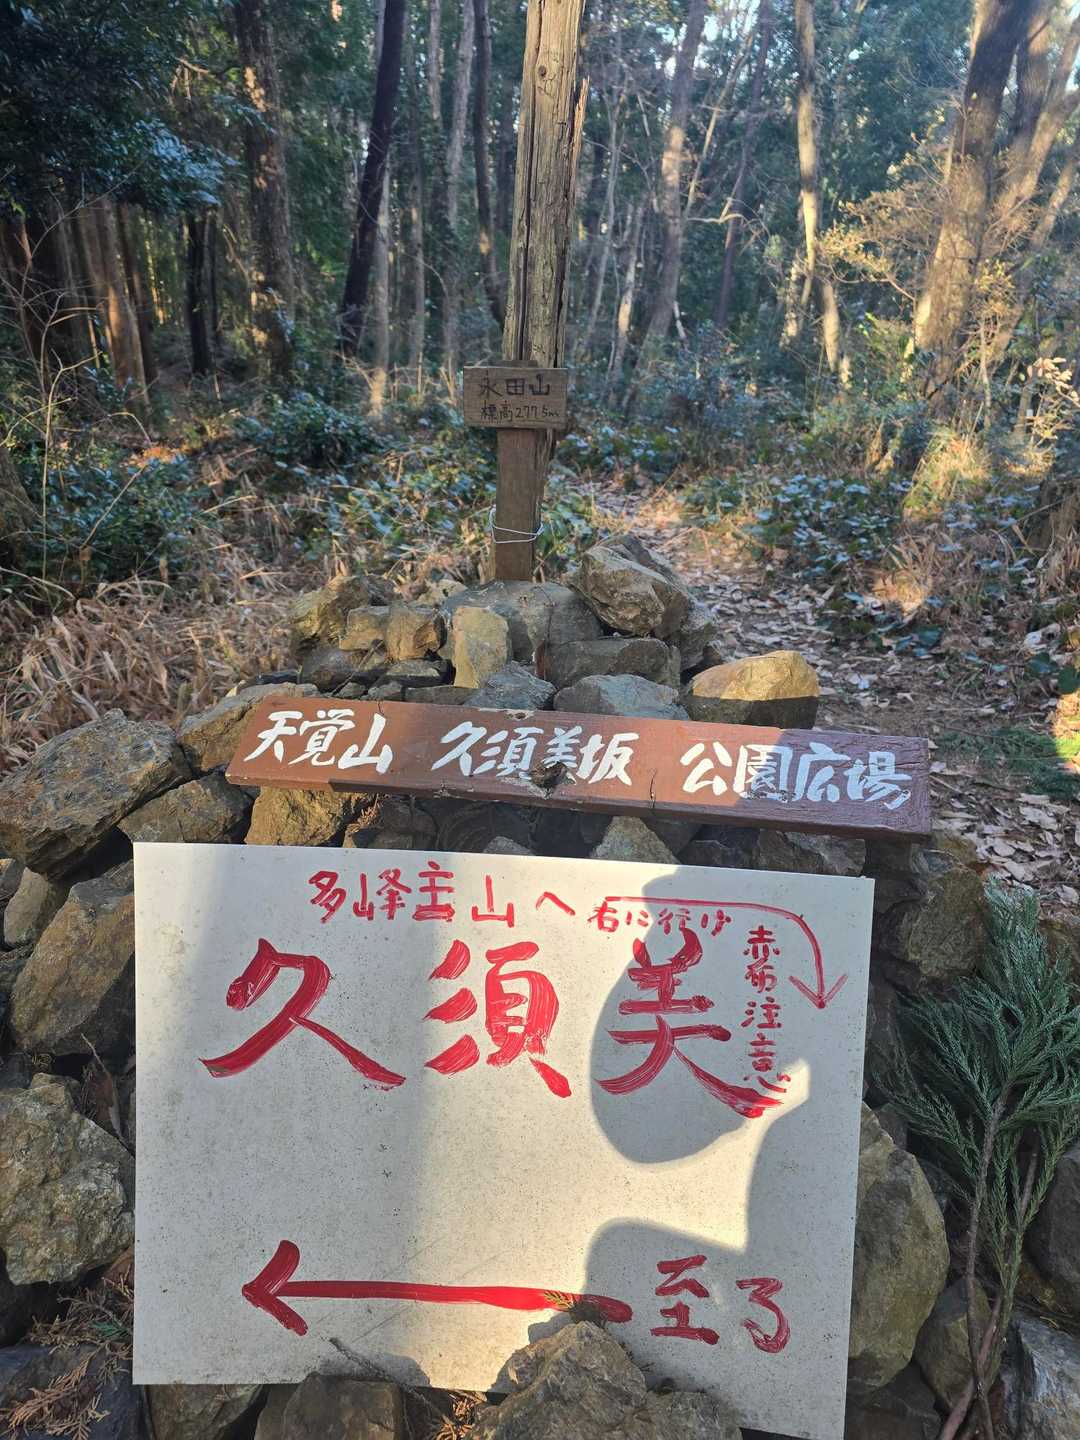 永田山
標高277.5m
天覚山 久須美坂 公園広場
多峰主山へ右に行け
赤布注意
久須美
至る